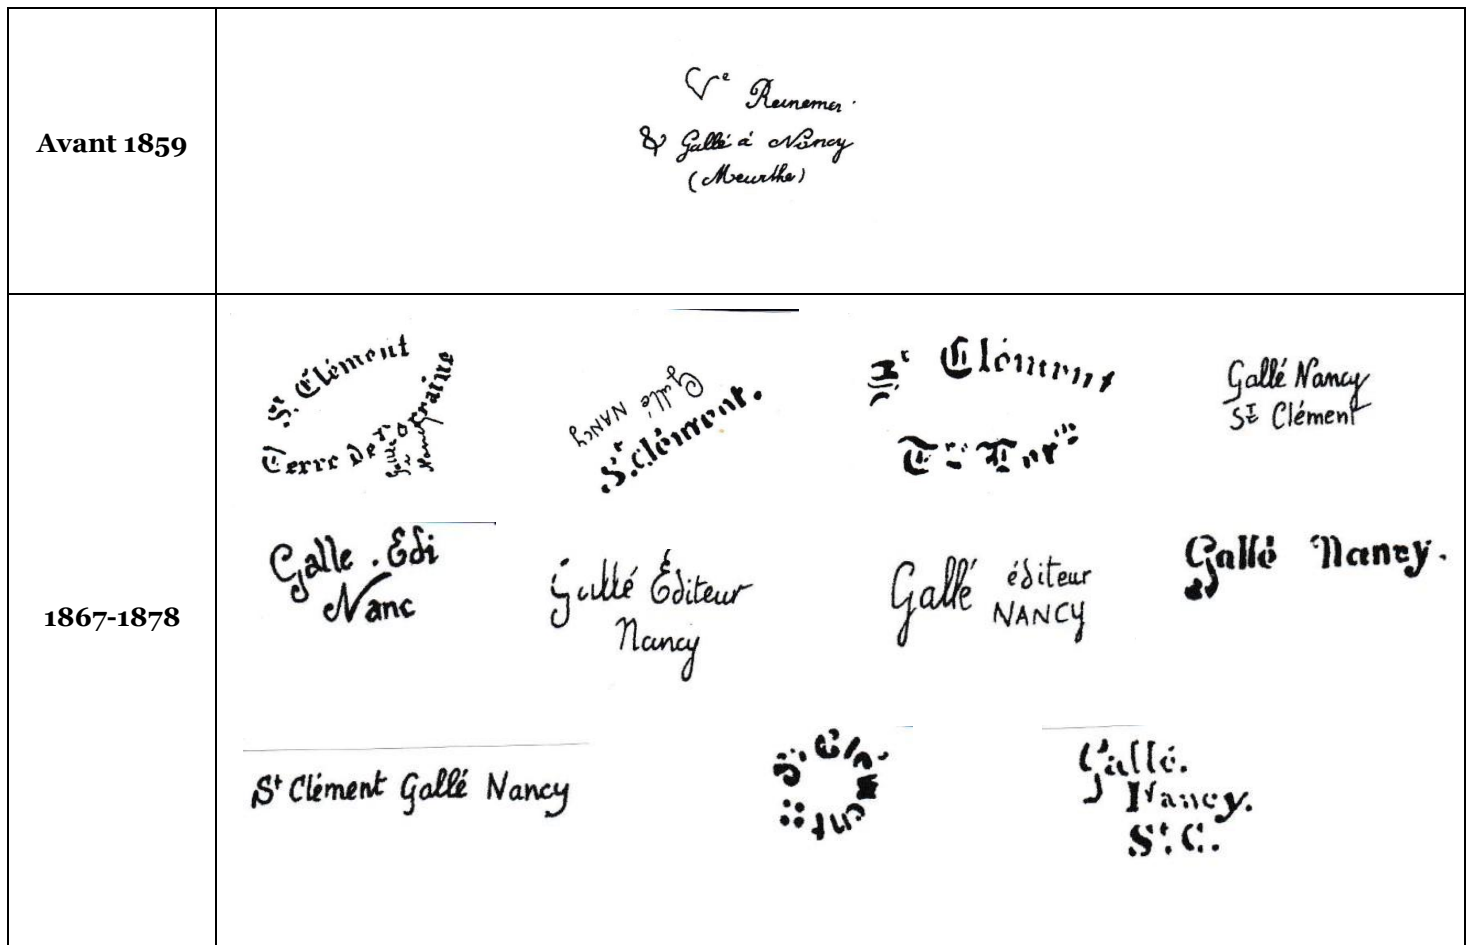 Avant 1859
Ve Reinemer.
& Gallé à Nancy
(Meurthe)
1867-1878
St Clément
Terre De Lorraine
Gallé
à
Nancy
Gallé NANCY
St Clément.
St Clément
Gallé Nancy
St Clément
Galle . Edi
Nanc
Gallé Éditeur
Nancy
Gallé éditeur
NANCY
Gallé Nancy.
St Clément Gallé Nancy
St Clément
Gallé.
Nancy.
St. C.